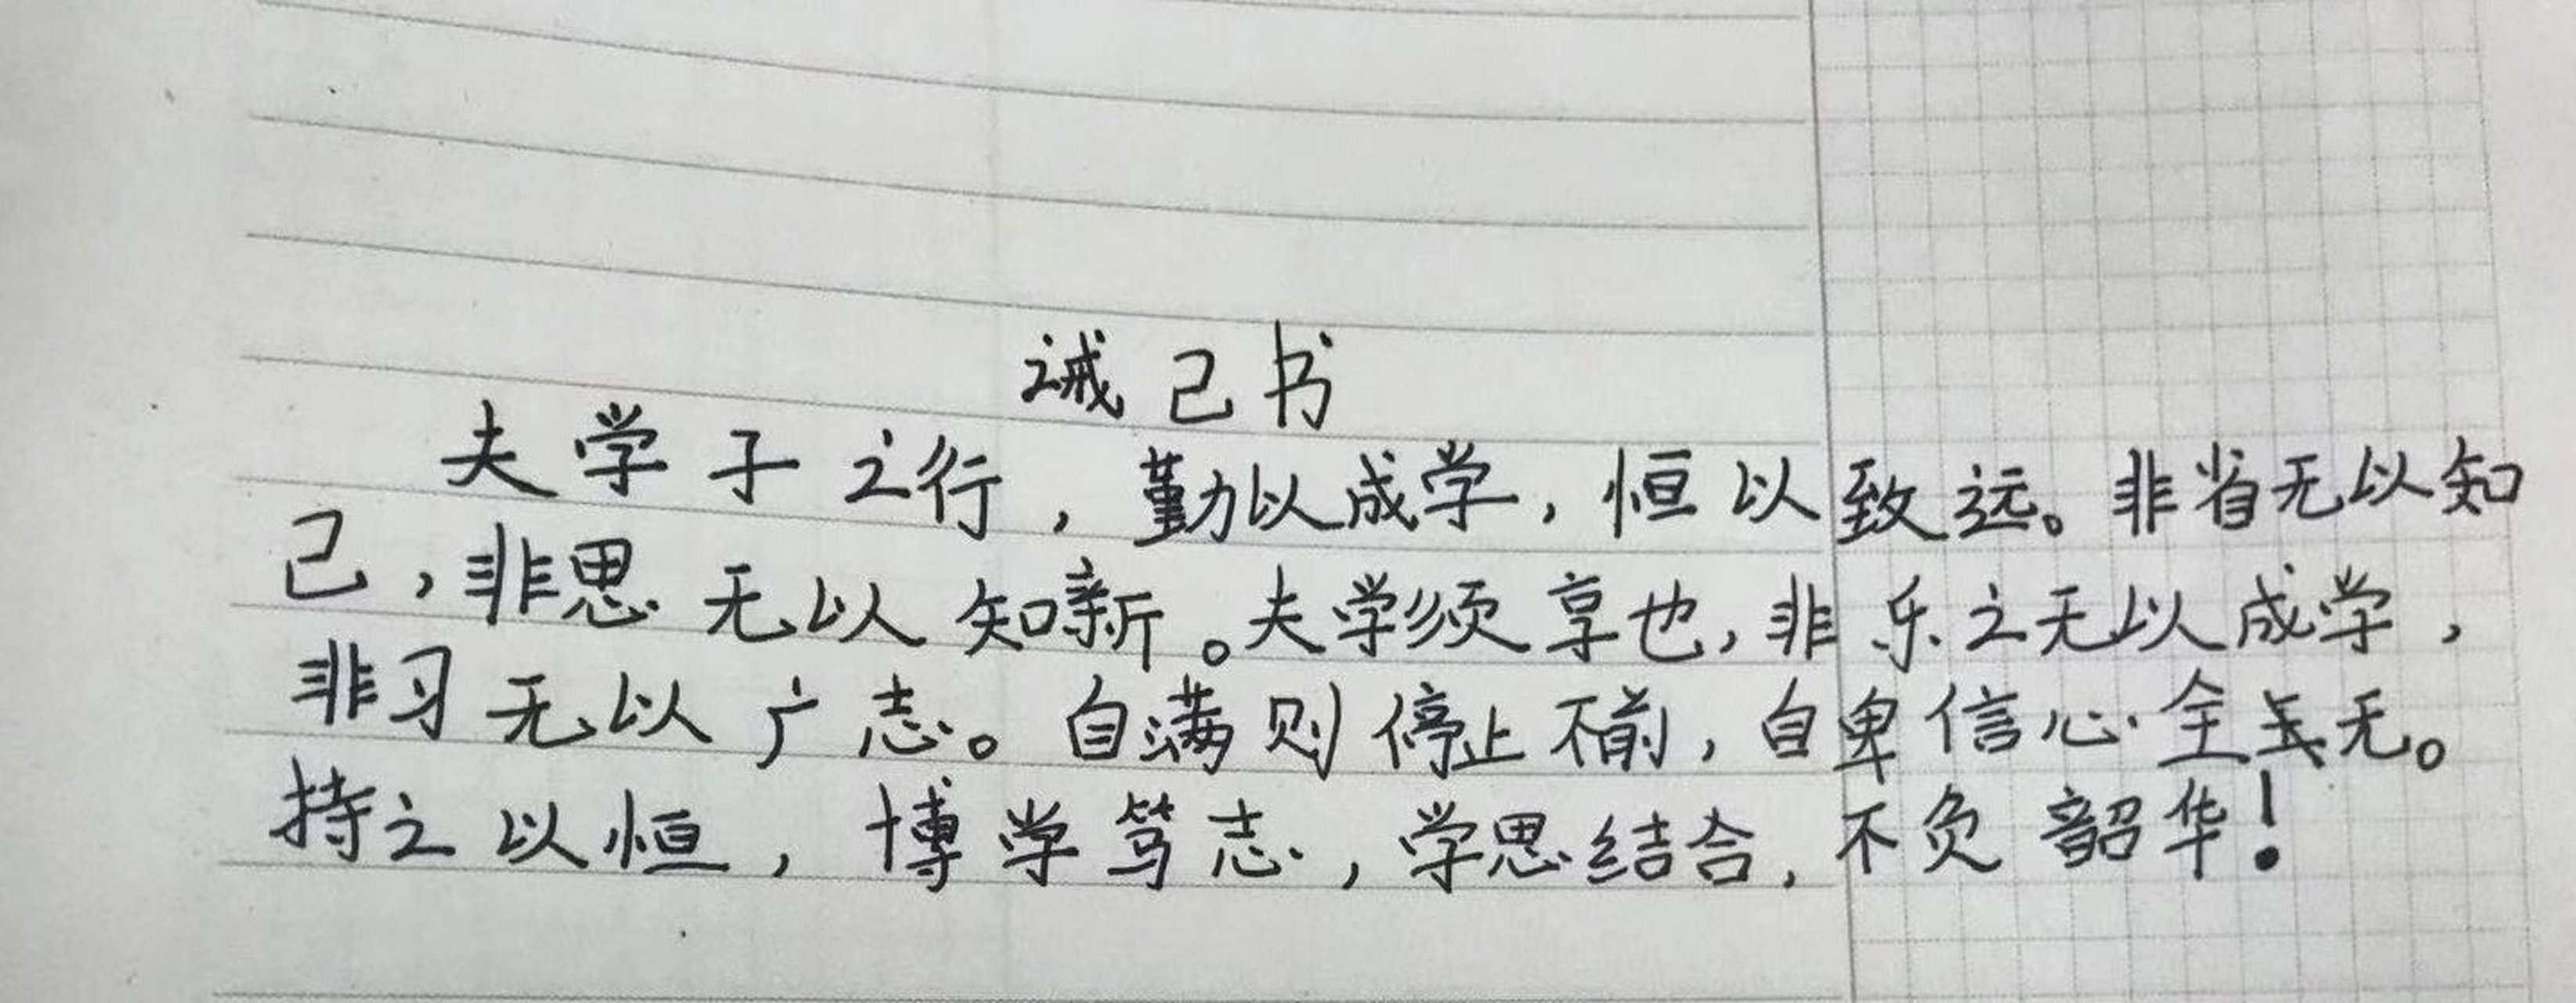 诫己书
夫学子之行，勤以成学，恒以致远。非省无以知
己，非思无以知新。夫学须享也，非乐之无以成学，
非习无以广志。自满则停止不前，自卑信心全无。
持之以恒，博学笃志，学思结合，不负韶华！